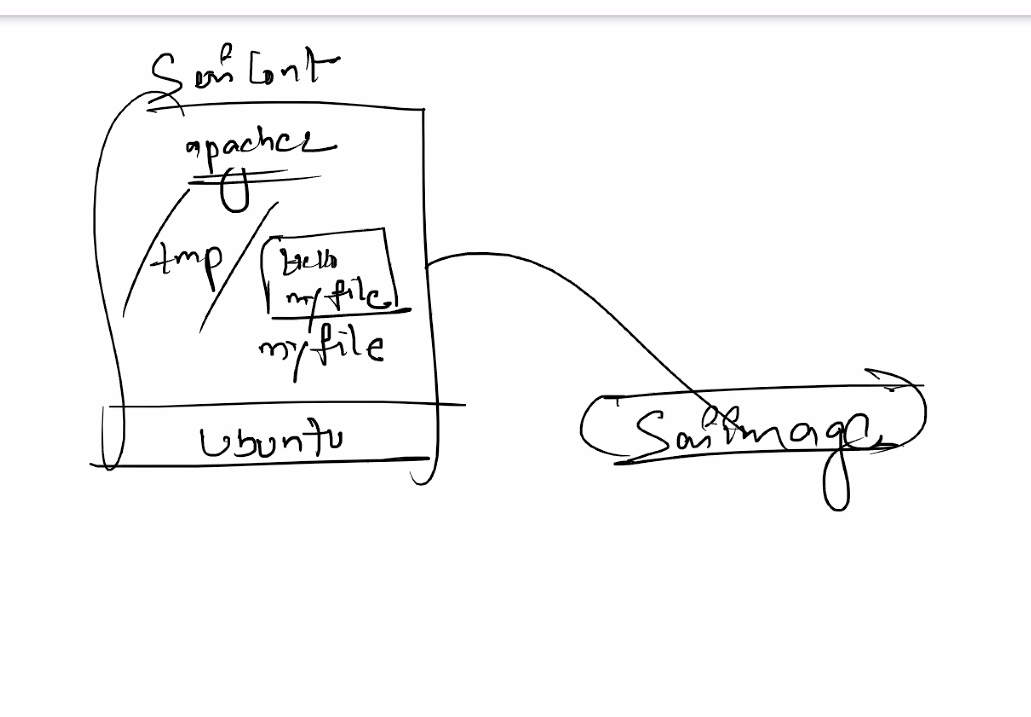 SaiCont
apache2
tmp
Hello
myfile
myfile
Ubuntu
Saiimage